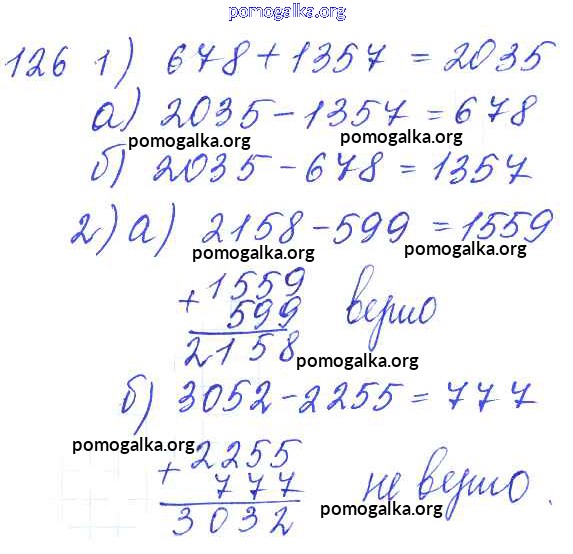 pomogalka.org
126 1) 678 + 1357 = 2035
а) 2035 - 1357 = 678
pomogalka.org pomogalka.org
б) 2035 - 678 = 1357
pomogalka.org
2) а) 2158 - 599 = 1559
pomogalka.org pomogalka.org
+ 1559
599 верно
2158
pomogalka.org
б) 3052 - 2255 = 777
pomogalka.org
+ 2255
777 не верно.
3032
pomogalka.org